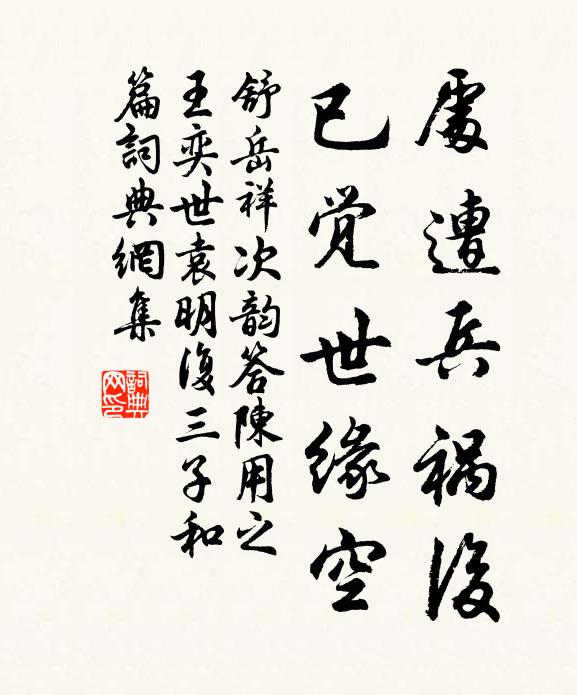 屢遭兵禍後
已覚世緣空
舒岳祥次韵答陳用之
王奕世袁明復三子和
篇詞典網集
詞典
网印